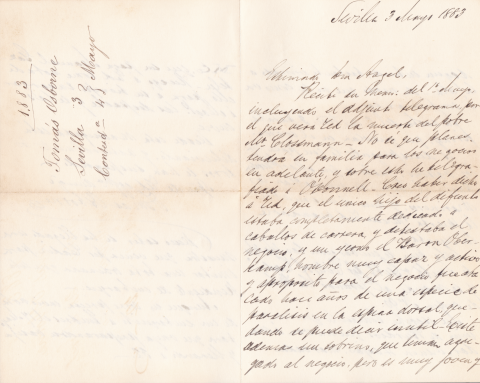 1883
Tomás Osborne
Sevilla 3 Mayo
Contestda 4
Sevilla 3 Mayo 1883
Estimado Don Angel,
Recibí su 1º Mayo,
incluyendo el adjunto telegrama por
el que vera Ud la muerte del pobre
Mr Clossmann – No se que planes
tendra su familia para los negocios
en adelante, y sobre esto he telegra-
fiado á O'Connell – Creo haber dicho
á Ud, que el unico hijo del difunto
estaba completamente dedicado á
caballos de carrera y detestaba el
negocio; y un yerno el Baron Ober-
kamp, hombre muy capaz y activo
y aproposito para el negocio fue ata-
cado hace años de una especie de
paralisis en la espina dorsal, que-
dando se puede decir inutil – este
ademas un sobrino, que tenian agre-
gado al negocio, pero es muy joven y